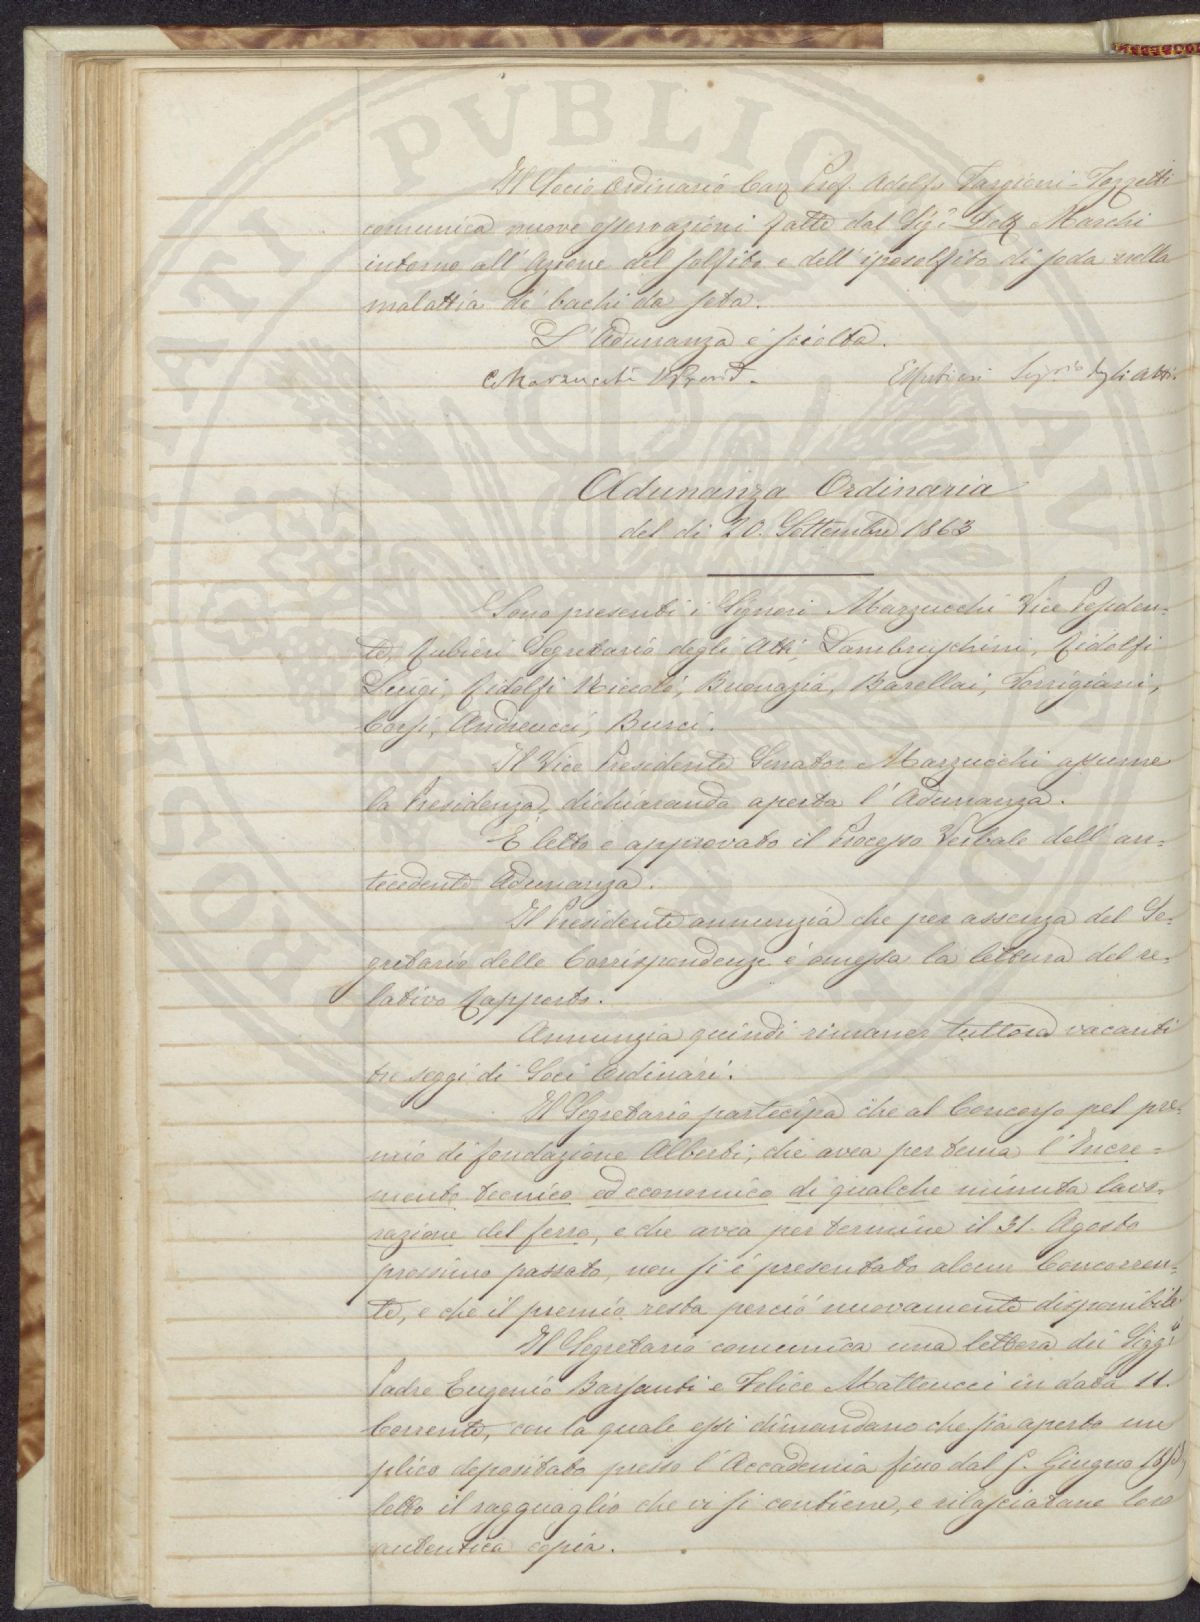 Il Socio Ordinario Cav. Prof. Adolfo Targioni-Tozzetti
comunica nuove osservazioni fatte dal Sig.r Dott. Marchi
intorno all'Azione del solfito e dell'iposolfito di soda nella
malattia de' bachi da seta.
L'Adunanza è sciolta.
C. Marzucchi V. Presid.
E. Rubieri Seg.rio degli Atti.
Adunanza Ordinaria
del dì 20. Settembre 1863
Sono presenti i Signori Marzucchi Vice Presiden=
te, Rubieri Segretario degli Atti, Lambruschini, Ridolfi
Luigi, Ridolfi Niccolò, Buonazia, Barellai, Torrigiani,
Corsi, Andreucci, Burci.
Il Vice Presidente Senator Marzucchi assume
la Presidenza, dichiarando aperta l'Adunanza.
È letto e approvato il Processo Verbale dell'an=
tecedente Adunanza.
Il Presidente annunzia che per assenza del Se=
gretario delle Corrispondenze è omessa la lettura del re=
lativo Rapporto.
Annunzia quindi rimaner tuttora vacanti
tre seggi di Soci Ordinari.
Il Segretario partecipa che al Concorso pel pre=
mio di fondazione Alberti, che avea per tema l'Incre=
mento tecnico ed economico di qualche minuta lavo=
razione del ferro, e che avea per termine il 31. Agosto
prossimo passato, non si è presentato alcun Concorren=
te, e che il premio resta perciò nuovamente disponibile.
Il Segretario comunica una lettera dei Sigg.ri
Padre Eugenio Barsanti e Felice Matteucci in data 11.
Corrente, con la quale essi dimandano che sia aperto un
plico depositato presso l'Accademia fino dal 5. Giugno 1853,
letto il ragguaglio che vi si contiene, e rilasciatane loro
autentica copia.